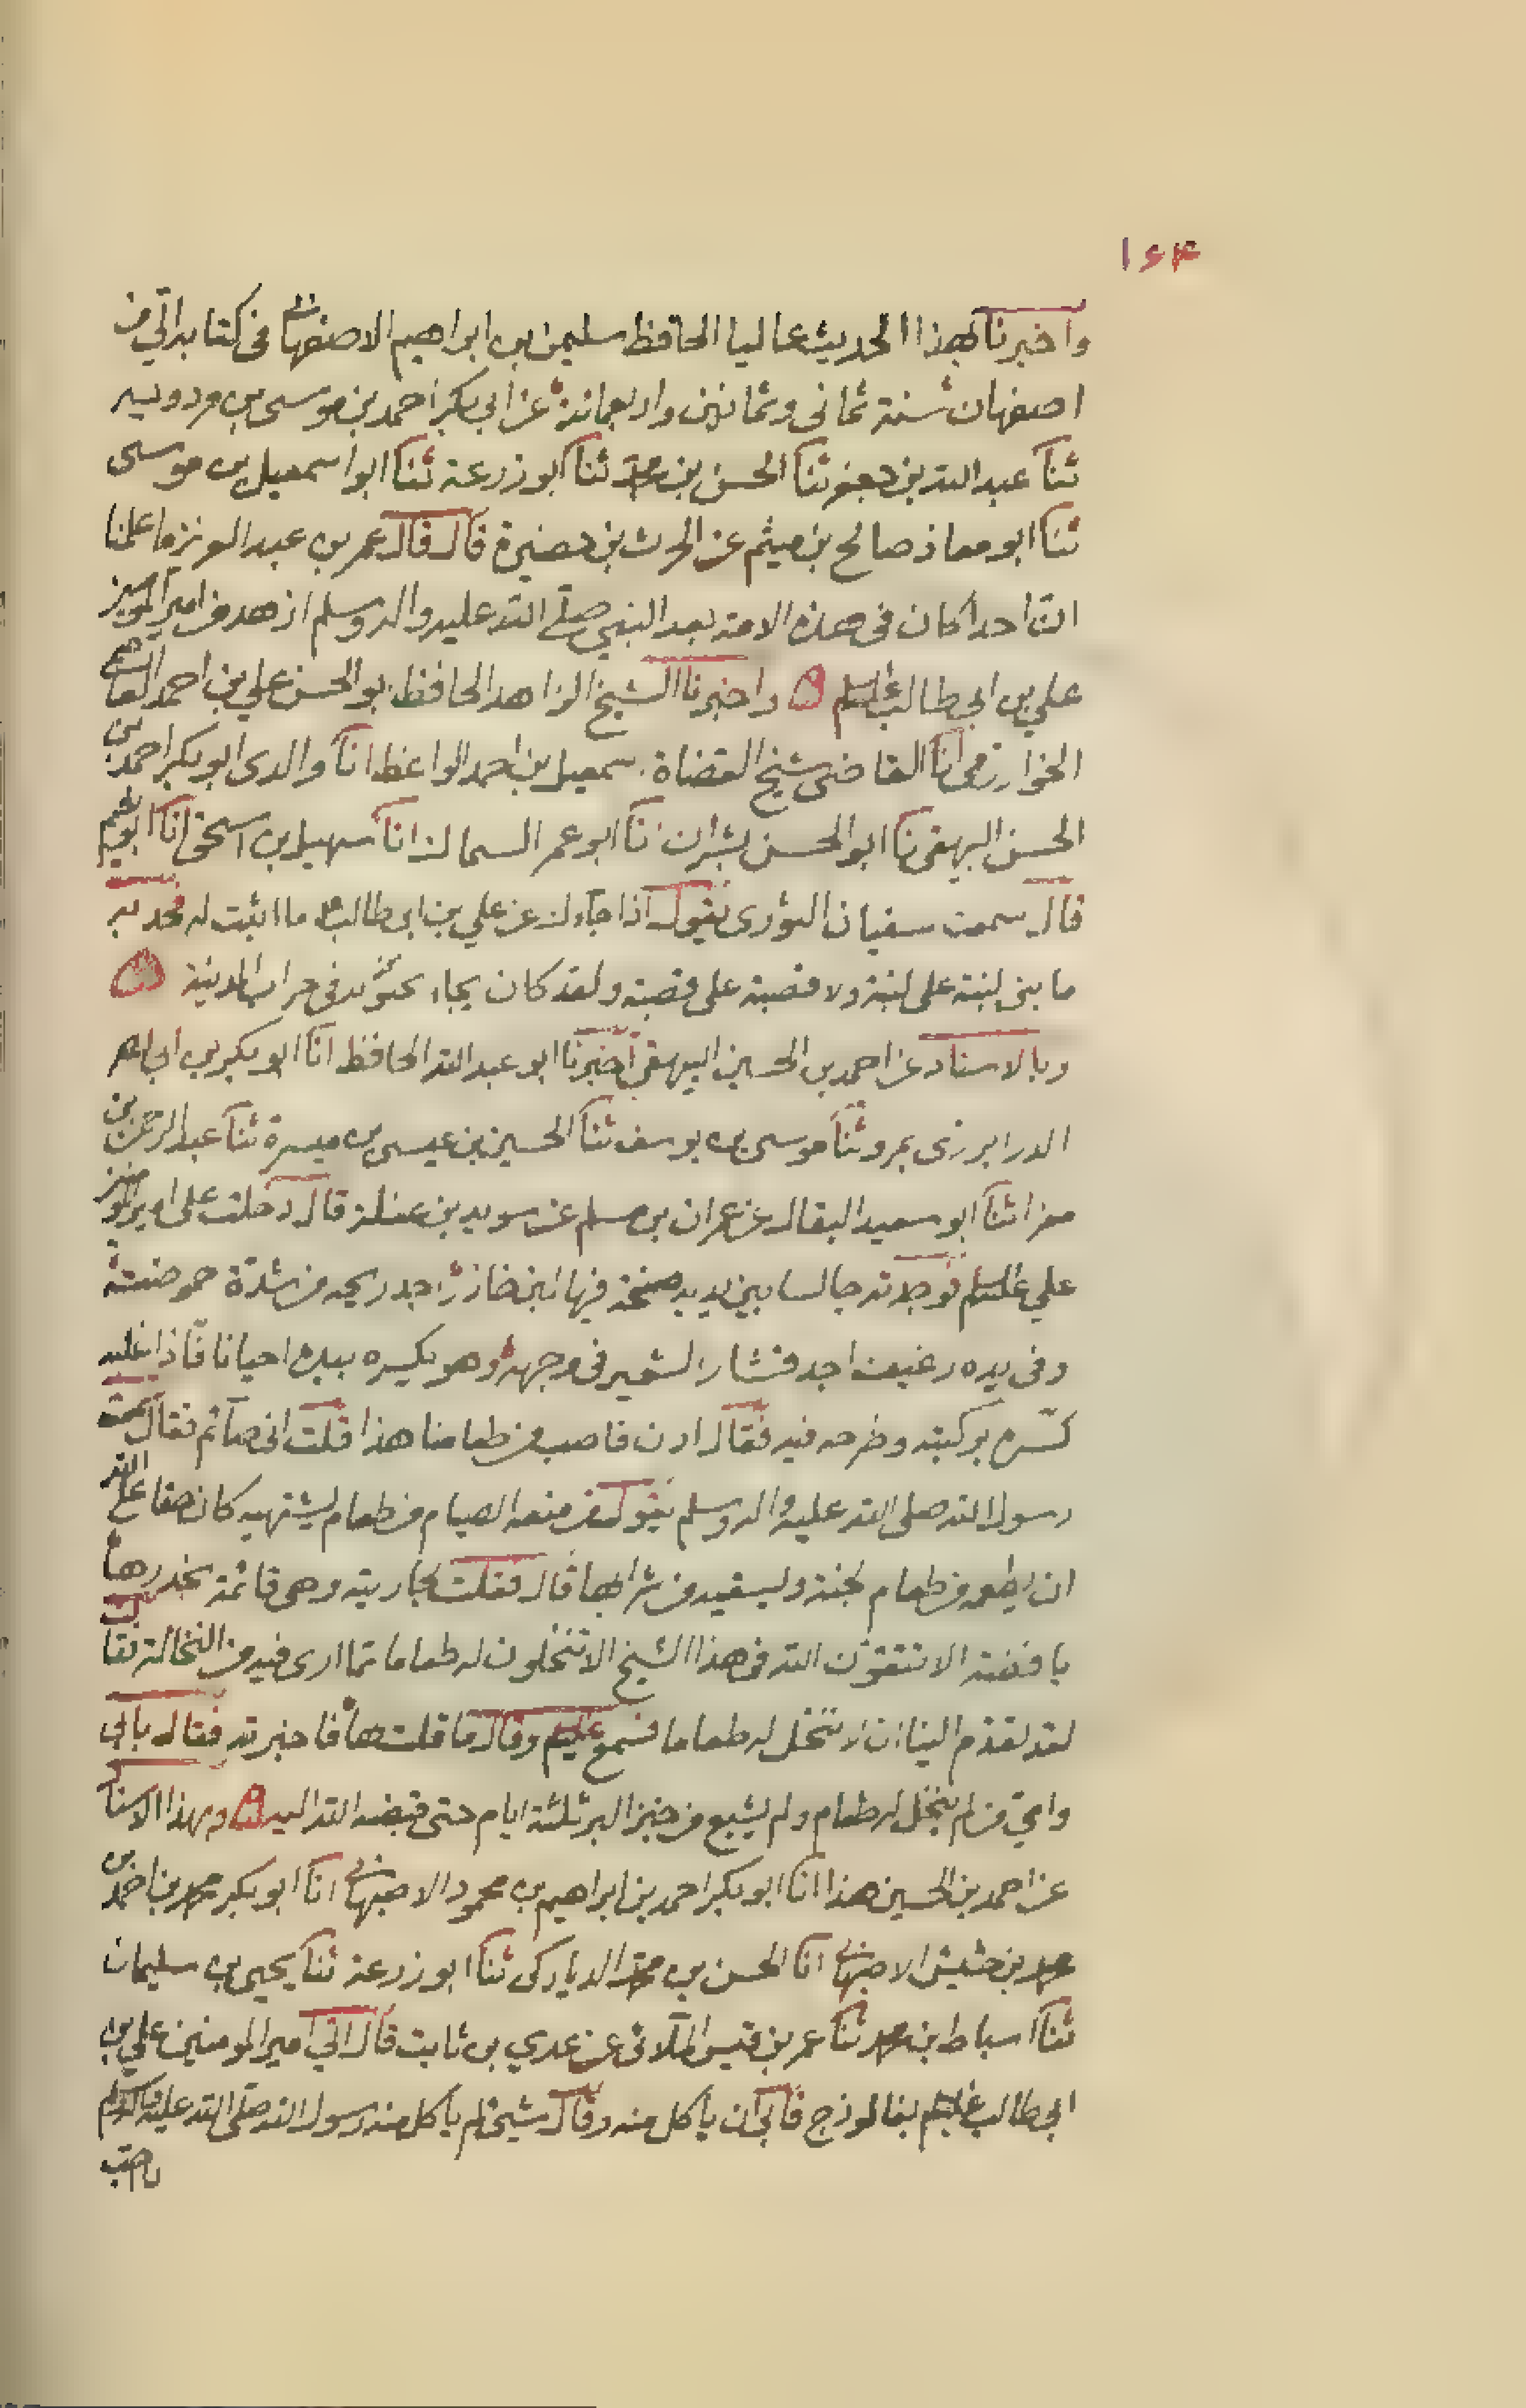 ۱۶۴
واخبرنا بهذا الحديث عاليا الحافظ سليمن بن ابراهيم الاصفهاني فى كتابه الي من
اصفهان سنة ثمانى وثمانين واربعمائة عن ابي بكر احمد بن موسى بن مردويه
ثنا عبد الله بن جعفر ثنا الحسن بن محمد ثنا ابو زرعة ثنا ابو اسمعيل بن موسى
ثنا ابو معاذ صالح بن ميثم عن الحرث بن حضيرة قال قال عمر بن عبد العزيز ما علمنا
ان احدا كان فى هذه الامة بعد النبي صلى الله عليه واله وسلم ازهد من امير المومنين
علي بن ابي طالب عليه السلم ۵ واخبرنا الشيخ الزاهد الحافظ ابو الحسن علي بن احمد العاصمي
الخوارزمى انا القاضى شيخ القضاة اسمعيل بن احمد الواعظ انا والدى ابو بكر احمد بن
الحسين البيهقى انا ابو الحسن بشران انا ابو عمر السماك انا سهيل بن اسحق انا ابو نعيم
قال سمعت سفيان الثورى يقول اذا جاءك عن علي بن ابى طالب ما اثبت له فخذ به
ما بنى لبنة على لبنة ولا قصبة على قصبة ولقد كان يجاء بحبوبه فى جراب المدينة ۵
وبالاسناد عن احمد بن الحسين البيهقي اخبرنا ابو عبد الله الحافظ انا ابو بكر بن ابي
الدرابرزى بمرو ثنا موسى بن يوسف ثنا الحسين بن عيسى بن ميسرة ثنا عبد الرحمن بن
مغرا ثنا ابو سعيد البقال عن عمران بن مسلم عن سويد بن غفلة قال دخلت على امير المومنين
علي عليه السلم فوجدته جالسا بين يديه صحفة فيها لبن خازر اجد ريحه من شدة حموضته
وفى يده رغيف اجد قشار الشعير فى وجهه وهو يكسره بيده احيانا فاذا غلبه
كسره بركبته وطرحه فيه فقال ادن فاصب من طعامنا هذا قلت اني صائم فقال سمعت
رسول الله صلى الله عليه واله وسلم يقول من منعه الصيام من طعام يشتهيه كان حقا على الله
ان يطعمه من طعام الجنة ويسقيه من شرابها قال فقلت لجاريته وهى قائمة
يا فضة الا تتقون الله فى هذا الشيخ الا تنخلون له طعاما مما ارى فيه من النخالة فقالت
لقد تقدم الينا ان لا ننخل له طعاما فسمع عليه السلم وقال ما قلت لها فاخبرته فقال بابي
وامي من لم ينخل له طعام ولم يشبع من خبز البر ثلثة ايام حتى قبضه الله اليه ۵ وبهذا الاسناد
عن احمد بن الحسين هذا انا ابو بكر احمد بن ابراهيم بن محمود الاصبهاني انا ابو بكر محمد بن احمد بن
محمد بن حشيش الاصبهاني انا الحسن بن محمد الدياركى ثنا ابو زرعة ثنا يحيى بن سليمان
ثنا اسباط بن محمد ثنا عمر بن قيس الملائى عن عدي بن ثابت قال اتي امير المومنين علي بن
ابي طالب عليه السلم بفالوذج فابى ان ياكل منه وقال شيء لم ياكل منه رسول الله صلى الله عليه واله وسلم
لا احب